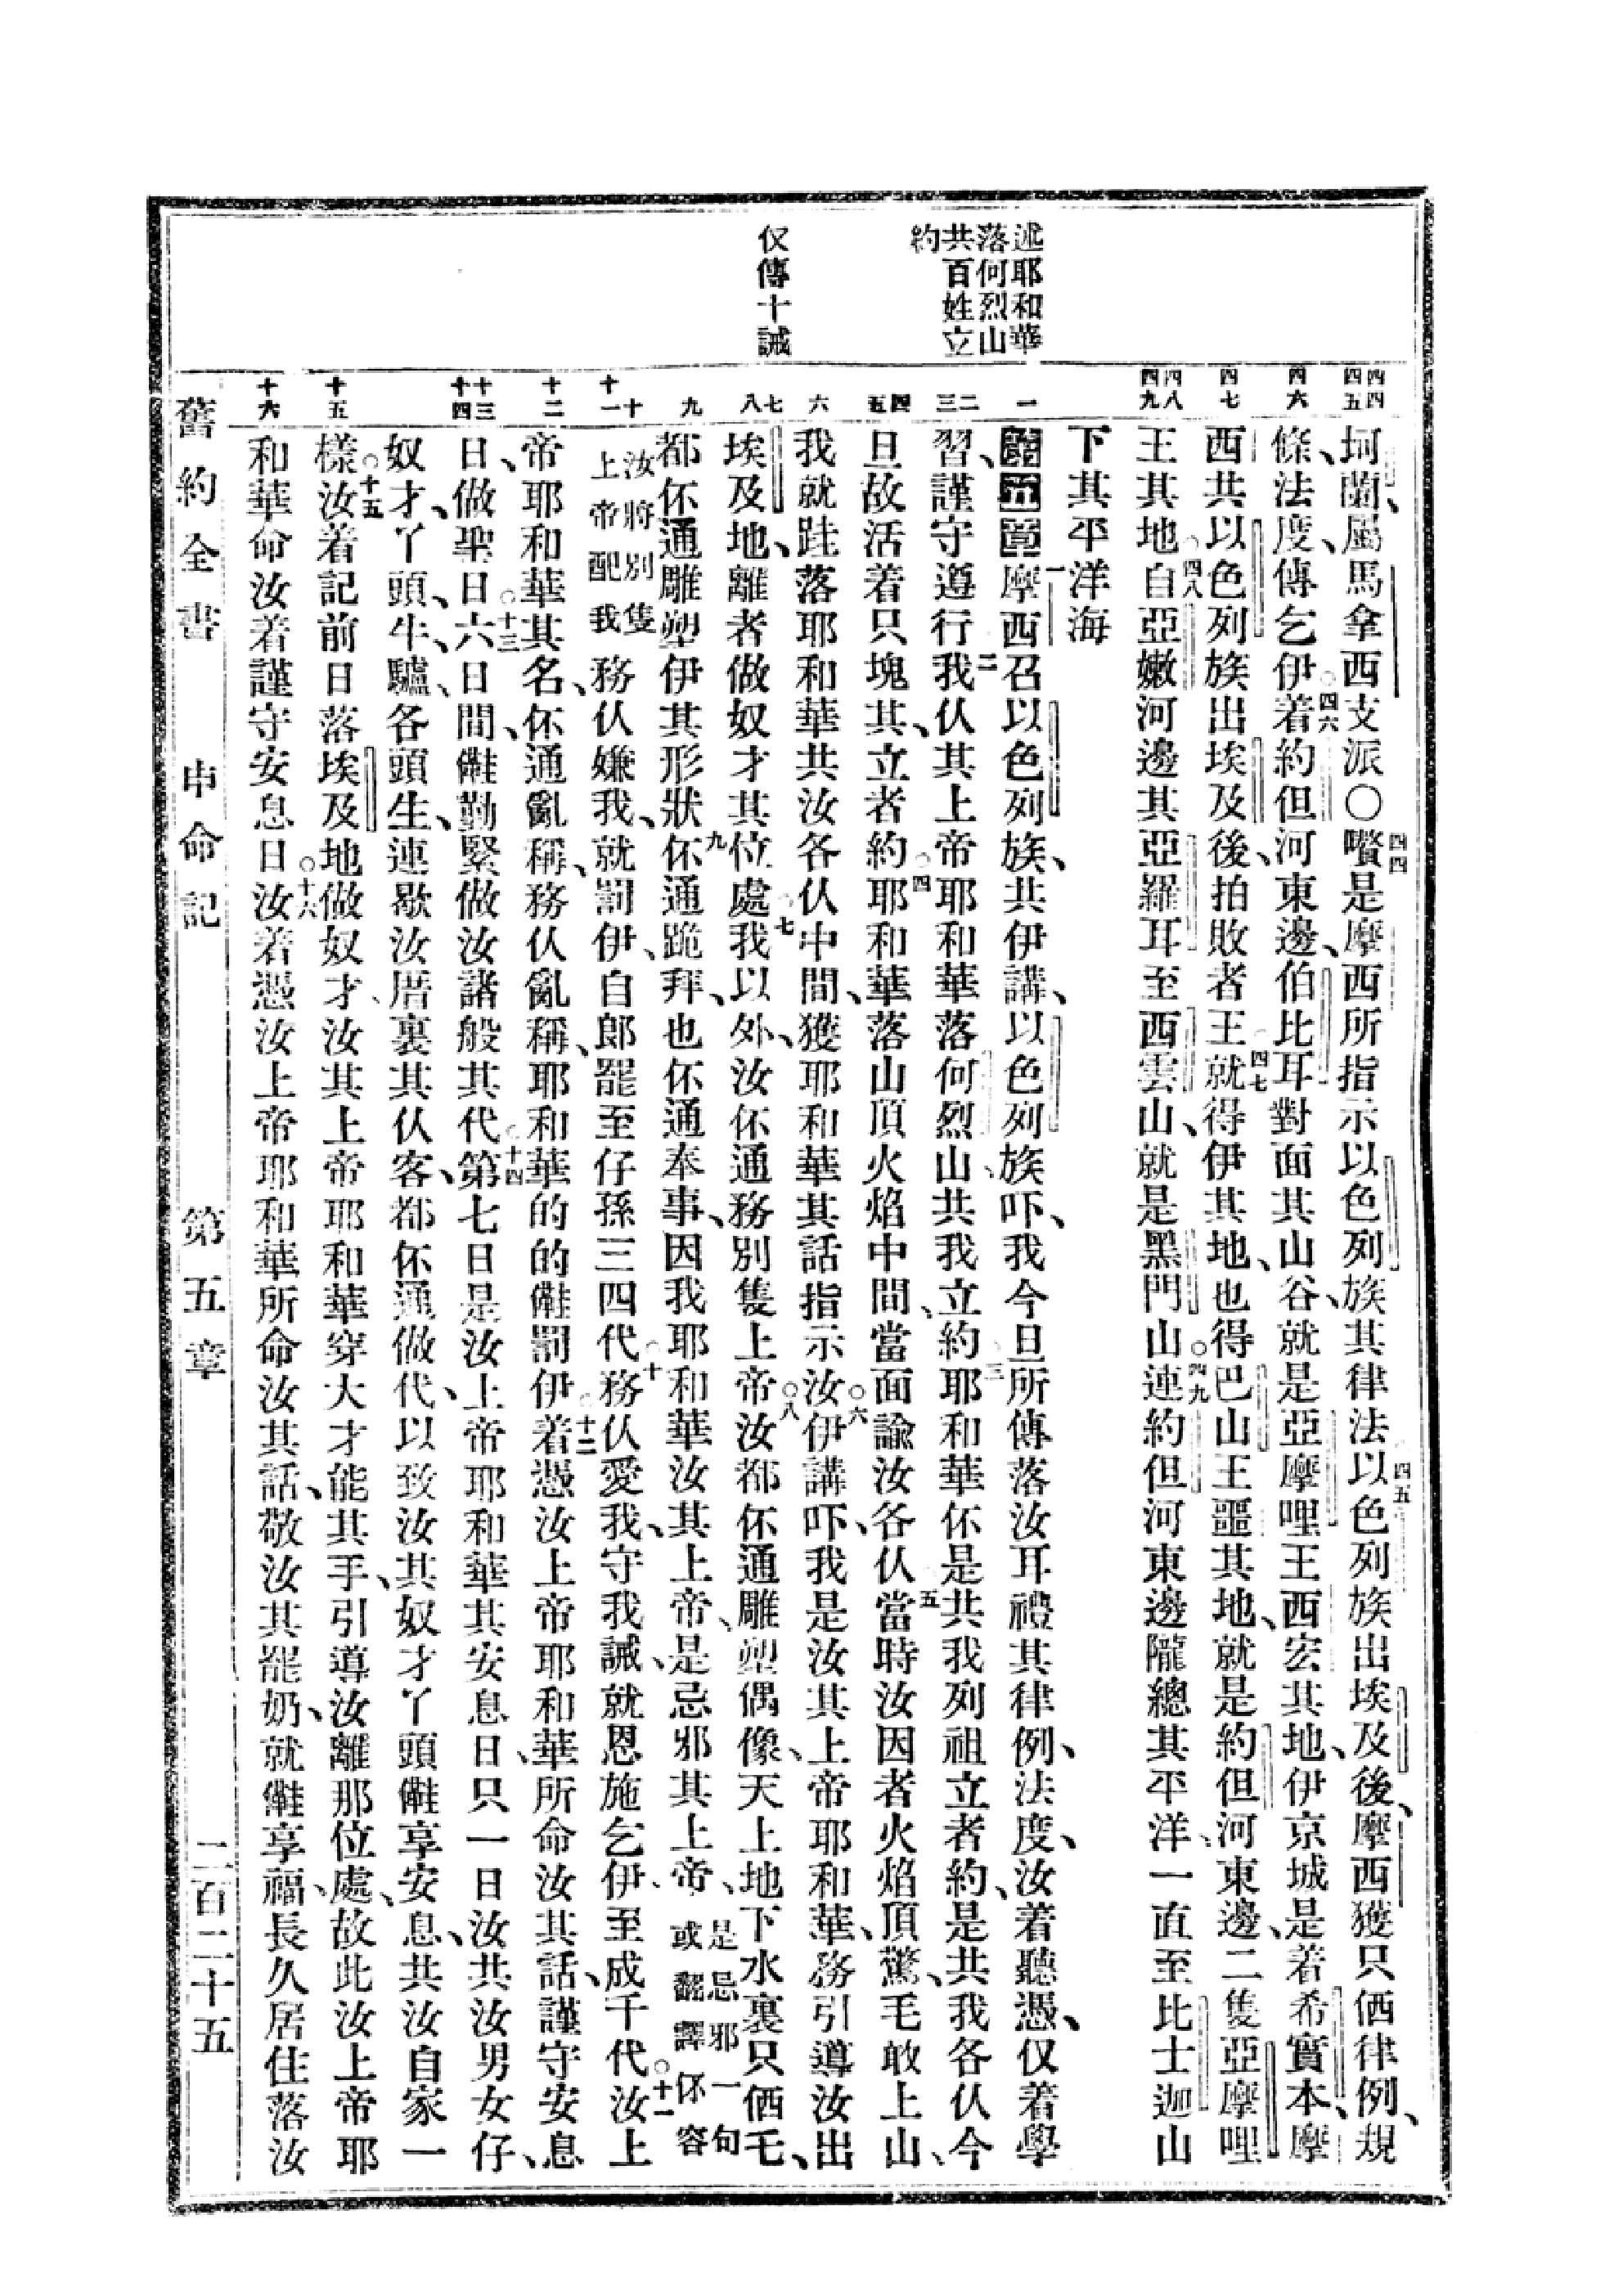 述耶和華
落何烈山
共百姓立
約
仅傳十誡
四四
四五
四六
四七
四八
四九
一
二
三
四
五
六
七
八
九
十
十一
十二
十三
十四
十五
十六
坷蘭、屬馬拿西支派○四四嚽是摩西所指示以色列族其律法四五以色列族出埃及後、摩西獲只𠋥律例、規
條、法度、傳乞伊着四六約但河東邊、伯比耳對面其山谷、就是亞摩哩王西宏其地、伊京城是着希實本、摩
西共以色列族出埃及後、拍敗者王四七就得伊其地、也得巴山王噩其地、就是約但河東邊、二隻亞摩哩
王其地○四八自亞嫩河邊其亞羅耳至西雲山、就是黑門山○四九連約但河東邊隴總其平洋、一直至比士迦山
下其平洋海
第五章一摩西召以色列族、共伊講、以色列族吓、我今旦所傳落汝耳禮其律例、法度、汝着聽憑、仅着學
習、謹守遵行二我仈其上帝耶和華落何烈山、共我立約三耶和華伓是共我列祖立者約、是共我各仈今
旦故活着只塊其、立者約○四耶和華落山頂火焰中間、當面諭汝各仈五當時汝因者火焰頂驚、毛敢上山、
我就跬落耶和華共汝各仈中間、獲耶和華其話指示汝○六伊講吓、我是汝其上帝耶和華、務引導汝出
埃及地、離者做奴才其位處○七我以外、汝伓通務別隻上帝○八汝都伓通雕塑偶像、天上地下水裏只𠋥乇、
都伓通雕塑伊其形狀九伓通跪拜、也伓通奉事、因我耶和華汝其上帝、是忌邪其上帝、是忌邪一句或翻譯伓容
汝將別隻上帝配我務仈嫌我、就罰伊、自郎罷至仔孫三四代○十務仈愛我、守我誡、就恩施乞伊、至成千代○十一汝上
帝耶和華其名、伓通亂稱、務仈亂稱、耶和華的的㑚罰伊○十二着憑汝上帝耶和華所命汝其話、謹守安息
日、做聖日○十三六日間、㑚勤緊做汝諸般其代○十四第七日是汝上帝耶和華其安息日、只一日汝共汝男女仔、
奴才、丫頭、牛、驢、各頭生、連歇汝厝裏其仈客、都伓通做代、以致汝其奴才丫頭㑚享安息、共汝自家一
樣○十五汝着記前日落埃及地做奴才、汝其上帝耶和華穿大才能其手、引導汝離那位處、故此汝上帝耶
和華命汝着謹守安息日○十六汝着憑汝上帝耶和華所命汝其話、敬汝其罷奶、就㑚享福、長久居住落汝
舊約全書　申命記　第五章　二百二十五